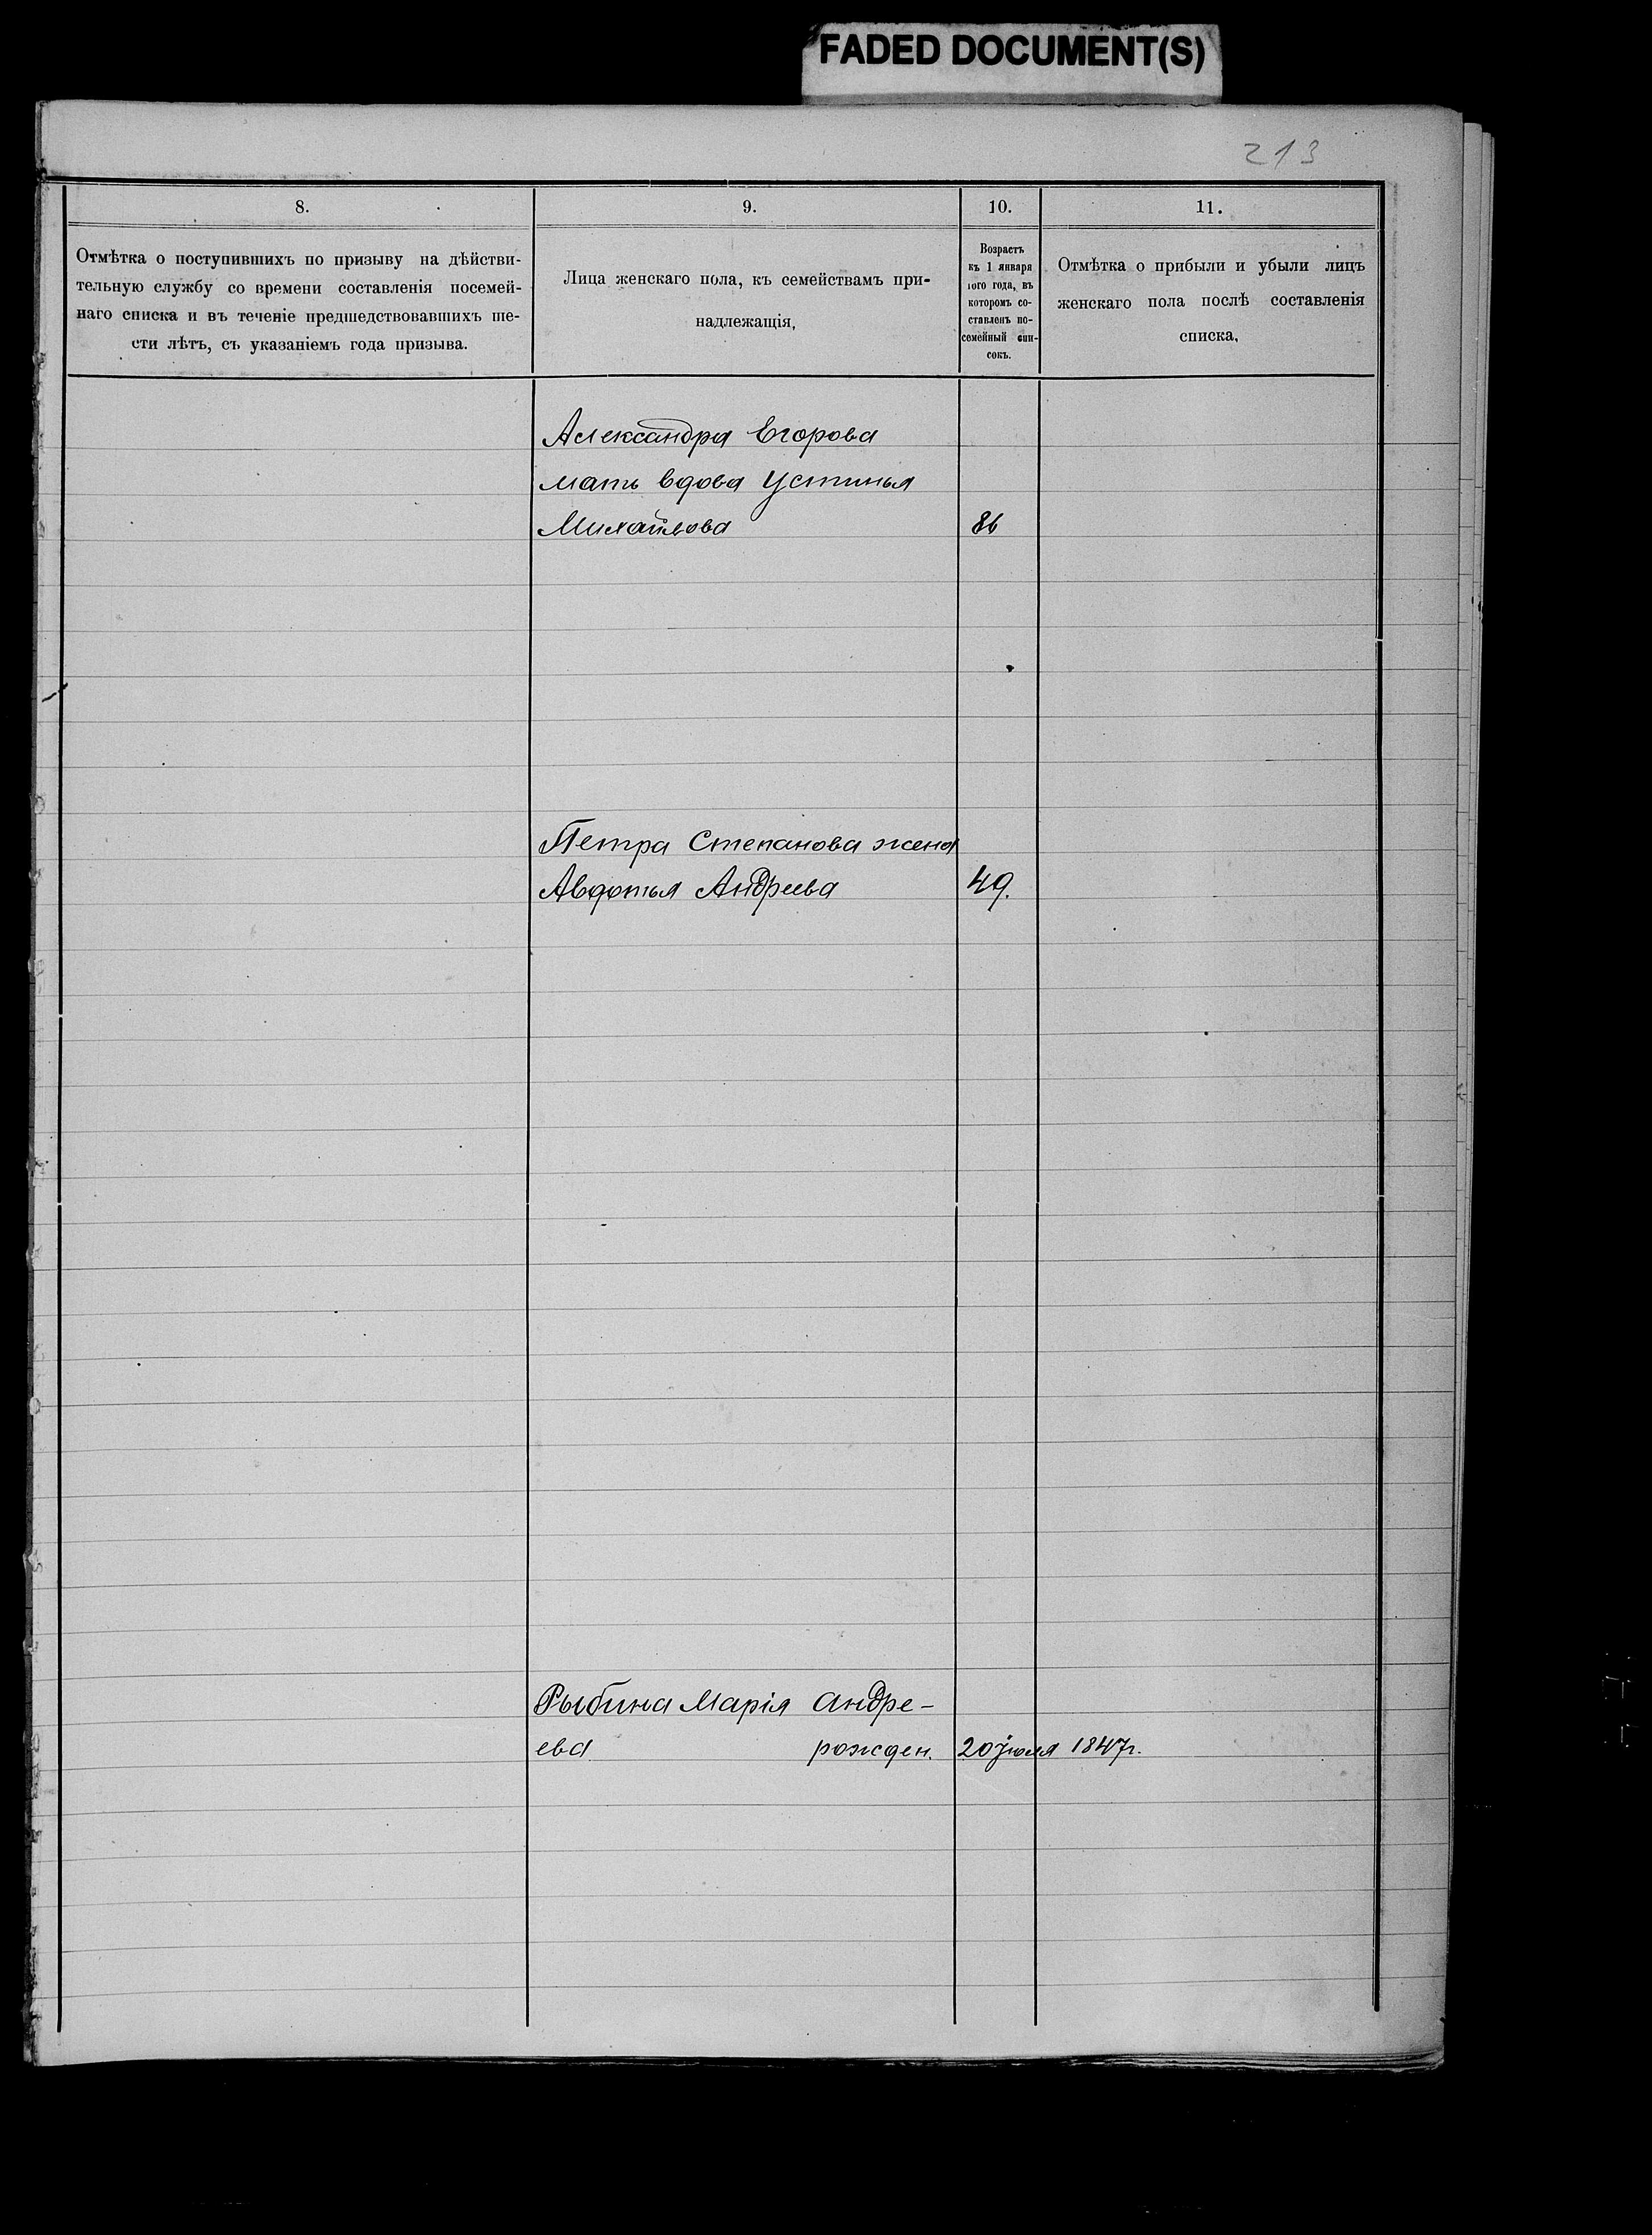 FADED DOCUMENT(S)
213
8.
9.
10.
11.
Отмѣтка о поступившихъ по призыву на дѣйстви-
тельную службу со времени составленія посемей-
наго списка и въ теченіе предшедствовавшихъ ше-
сти лѣтъ, съ указаніемъ года призыва.
Лица женскаго пола, къ семействамъ при-
надлежащія,
Возрастъ
къ 1 января
того года, въ
которомъ со-
ставленъ по-
семейный спи-
сокъ.
Отмѣтка о прибыли и убыли лицъ
женскаго пола послѣ составленія
списка,
Александра Егорова
мать вдова Устинья
Михайлова 86
Петра Степанова жена
Авдотья Андреева 49.
Рыбина Марія Андре-
ева рожден. 20 Июля 1847г.